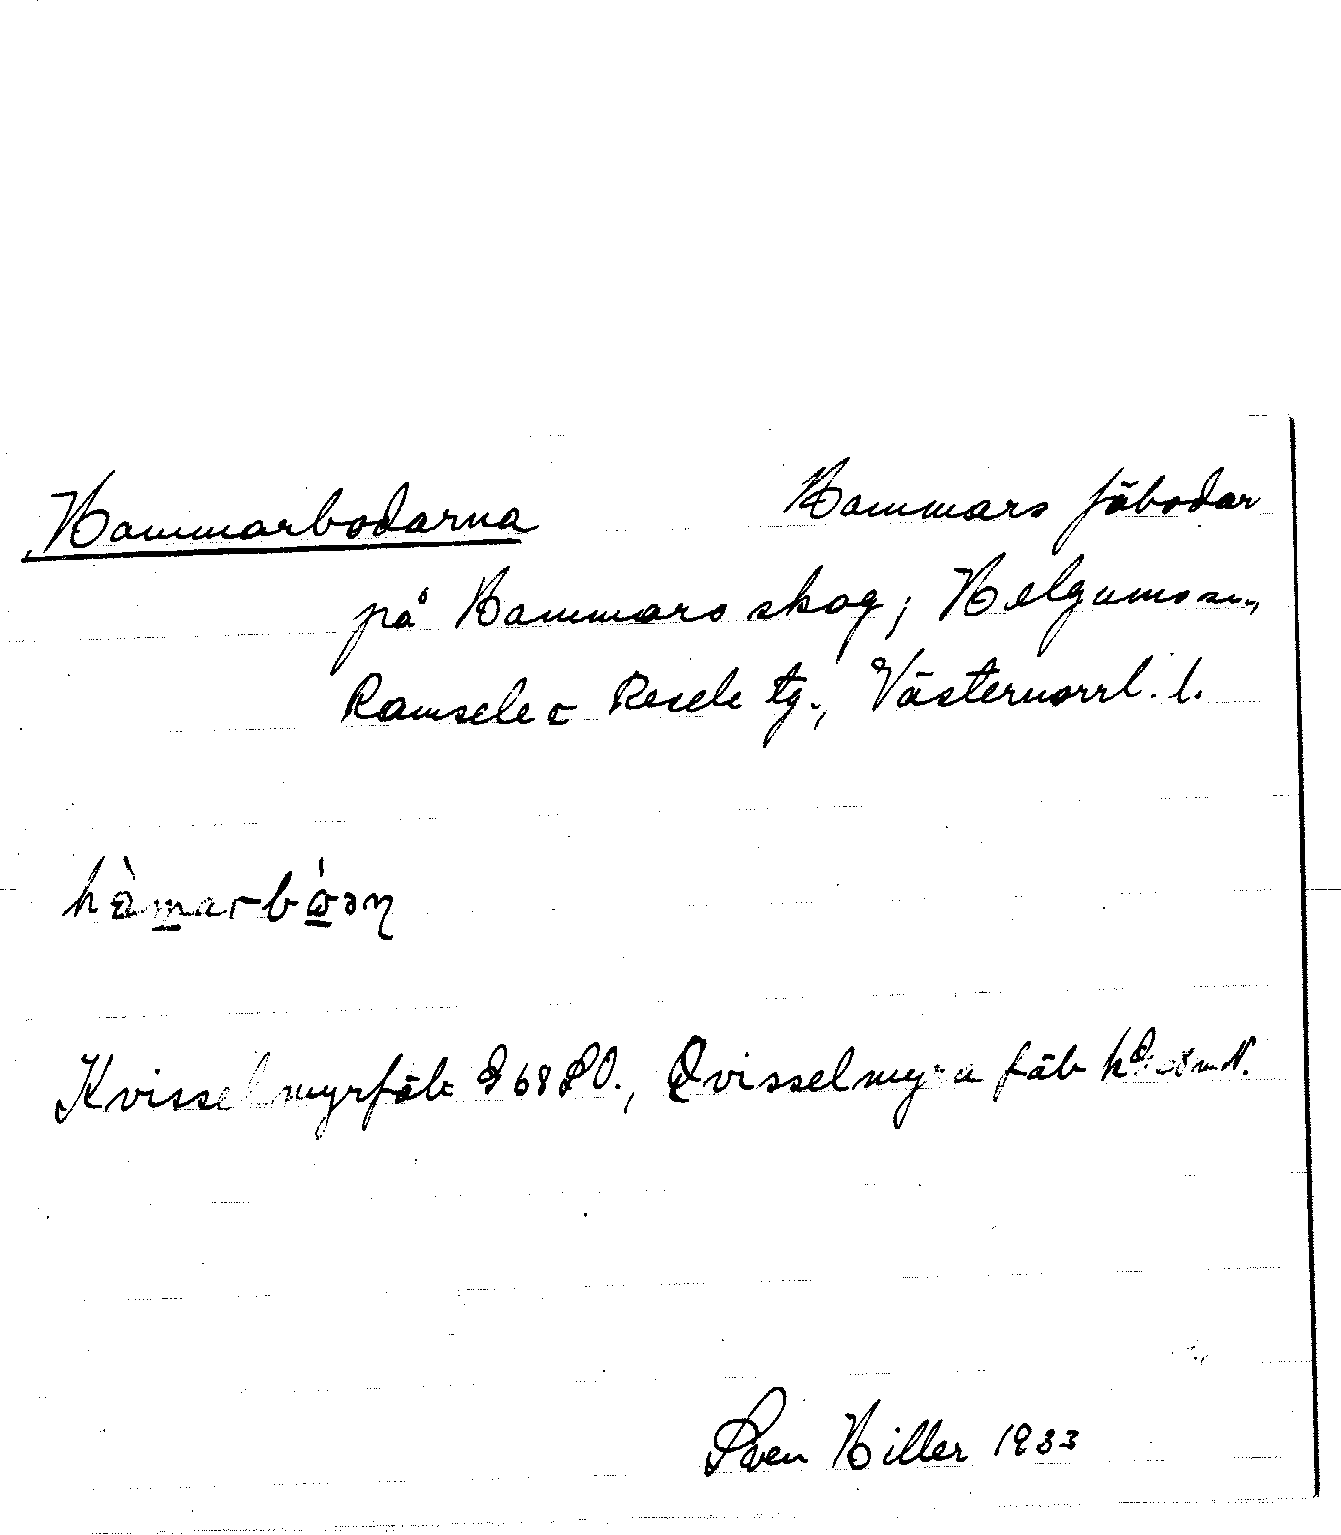 Hammarbodarna Hammars fäbodar
på Hammars skog, Helgums sn,
Ramsele o Resele tg., Västernorrl. l.
hàmarbóən
Kvisselmyrfäb 68 SO., Qvisselmyra fäb
Sven Hiller 1933